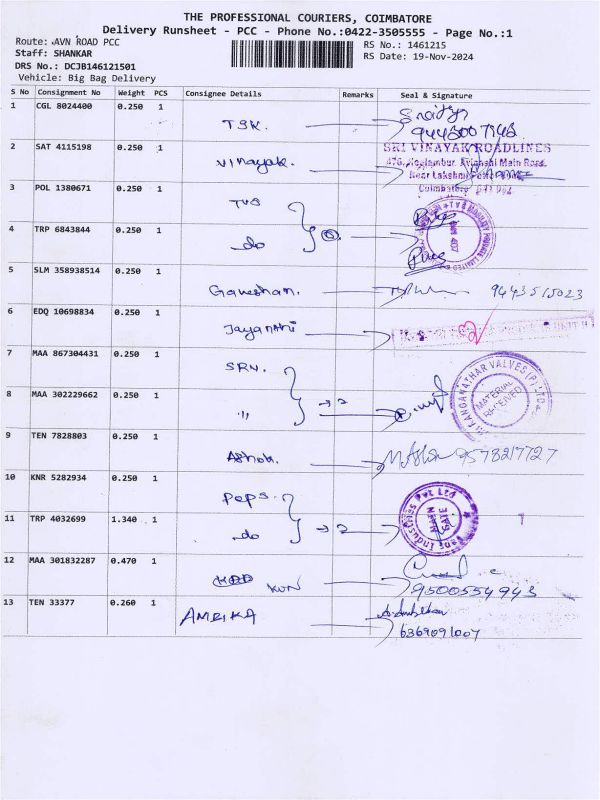 THE PROFESSIONAL COURIERS, COIMBATORE
Delivery Runsheet - PCC - Phone No.:0422-3505555 - Page No.:1
Route: AVN ROAD PCC
RS No.: 1461215
Staff: SHANKAR
RS Date: 19-Nov-2024
DRS No.: DCJB146121501
Vehicle: Big Bag Delivery
S No Consignment No Weight PCS Consignee Details Remarks Seal & Signature
1 CGL 8024400 0.250 1
2 SAT 4115198 0.250 1 Vinayak.
SRI VINAYAK ROADLINES
Avinashi Main Road.
Coimbatore
3 POL 1380671 0.250 1 TVS
4 TRP 6843844 0.250 1 do
5 SLM 358938514 0.250 1 Ganeshan. 9443515023
6 EDQ 10698834 0.250 1
7 MAA 867304431 0.250 1 SRN.
8 MAA 302229662 0.250 1 "
RANGANATHAR VALVES (P) LTD
MATERIAL RECEIVED
9 TEN 7828803 0.250 1 Ashok. 9578217727
10 KNR 5282934 0.250 1 Pops.
11 TRP 4032699 1.340 1 do
Industries Pvt Ltd
MAIN GATE
12 MAA 301832287 0.470 1 KUN
9500554943
13 TEN 33377 0.260 1 AMRIKA
6369091007